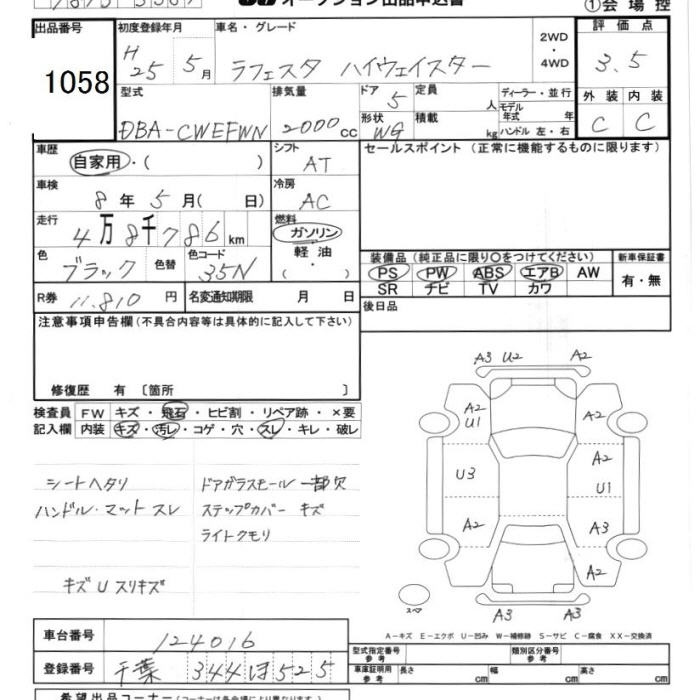 オークション出品申込書
①会場控
出品番号 初度登録年月 車名・グレード 2WD・4WD 評価点
1058 H25 5月 ラフェスタ ハイウェイスター 3.5
型式 排気量 ドア 定員 ディーラー・並行 外装 内装
DBA-CWEFWN 2000cc 5 人 モデル年式 年 C C
形状 積載 ハンドル 左・右
WG kg
車歴 シフト セールスポイント(正常に機能するものに限ります)
自家用・( ) AT
車検 冷房
8年5月( 日) AC
走行 燃料
4万8千786km ガソリン・軽油・( )
色 色替 色コード 装備品(純正品に限り○をつけてください) 新車保証書
ブラック 35N PS PW ABS エアB AW 有・無
SR ナビ TV カワ
R券 11,810円 名変通知期限 月 日 後日品
注意事項申告欄(不具合内容等は具体的に記入して下さい)
修復歴 有〔箇所 〕
検査員記入欄 FW キズ・飛石・ヒビ割・リペア跡・×要
内装 キズ・汚レ・コゲ・穴・スレ・キレ・破レ
シートヘタリ ドアガラスモール一部欠
ハンドル・マットスレ ステップカバー キズ
ライトクモリ
キズUスリキズ
A3 U2 A2
A2 U1
A2
U3
U1
A2 A3
A2
スペア
A3 A3
A-キズ E-エクボ U-凹み W-補修跡 S-サビ C-腐食 XX-交換済
車台番号 124016 型式指定番号 参考 類別区分番号 参考
登録番号 千葉 344 ほ 525 車庫証明用 参考 長さ cm 幅 cm 高さ cm
希望出品コーナー